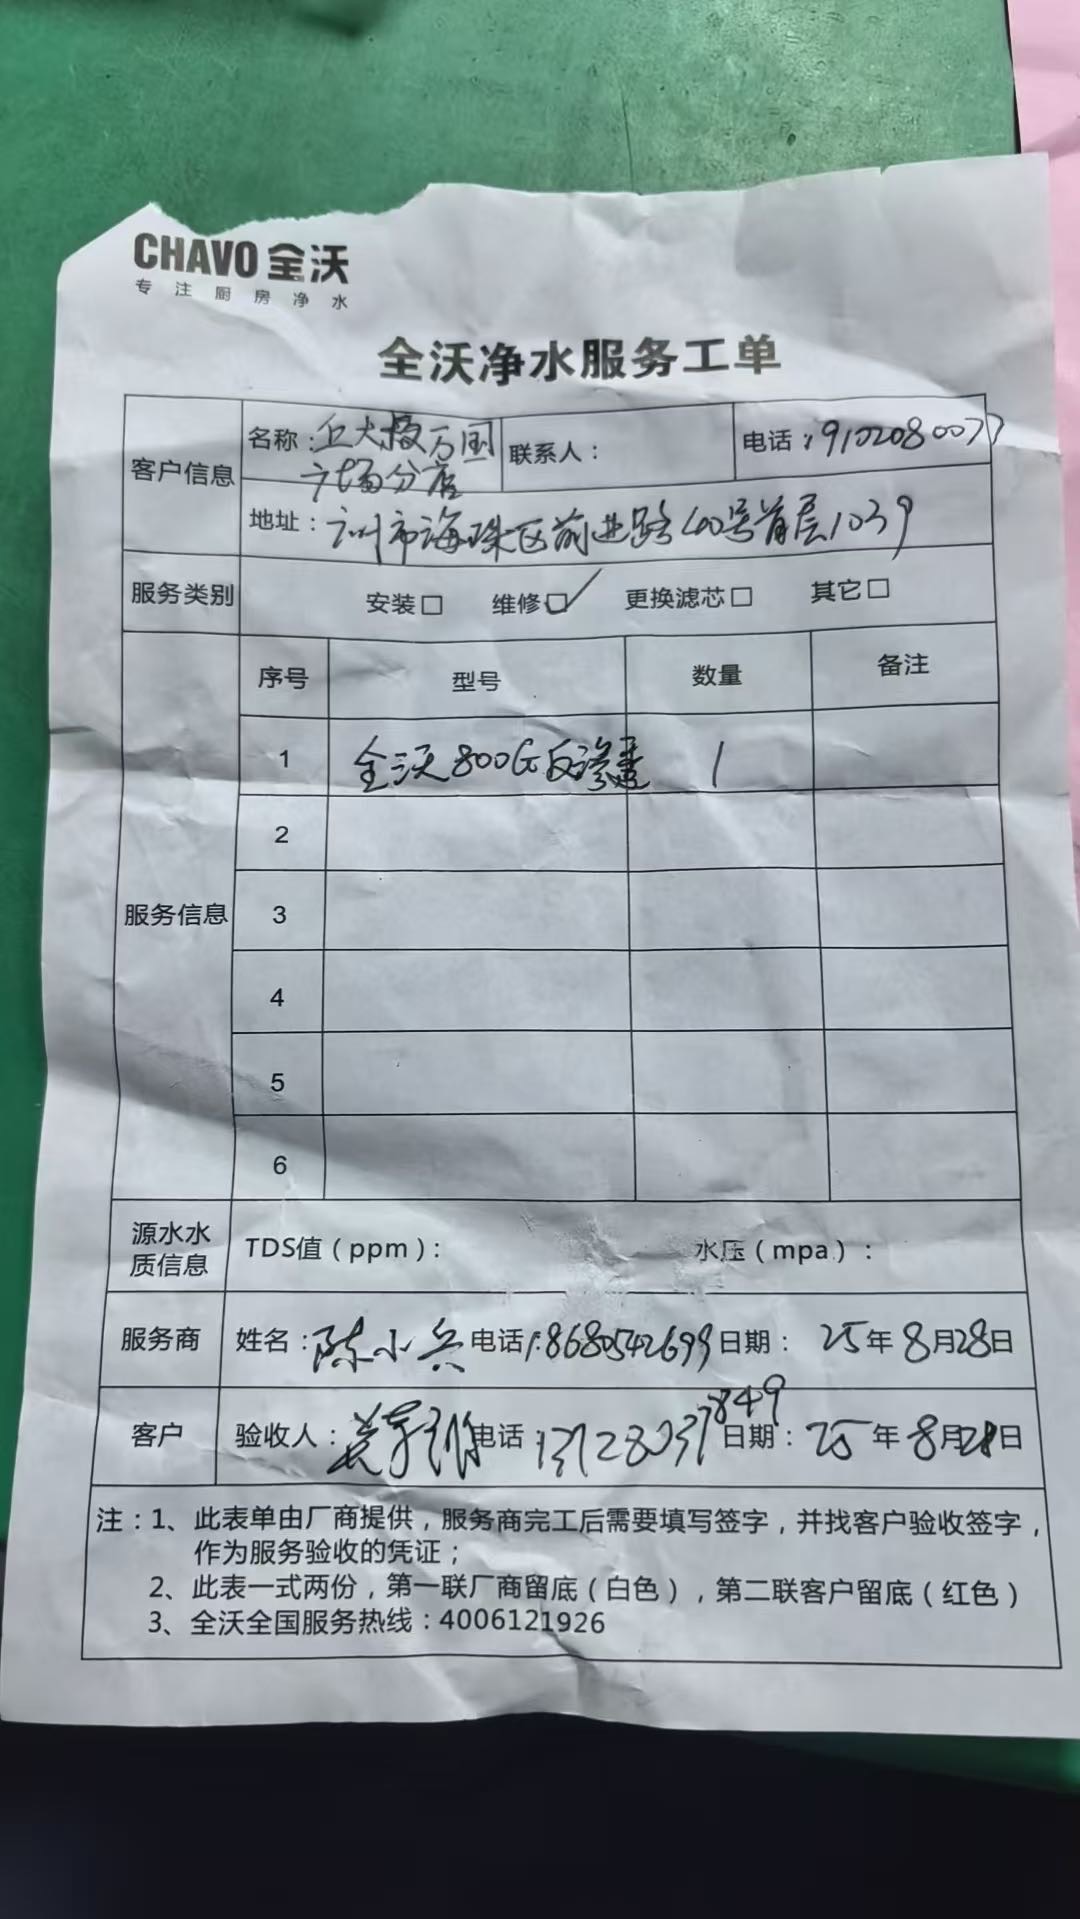 CHAVO 全沃
专注厨房净水
全沃净水服务工单
客户信息
名称：丘大叔万国
广场分店
联系人：
电话：19102080077
地址：广州市海珠区前进路40号首层1039
服务类别 安装□ 维修□✓ 更换滤芯□ 其它□
服务信息
序号 型号 数量 备注
1 全沃800G反渗透 1
2
3
4
5
6
源水水
质信息
TDS值（ppm）： 水压（mpa）：
服务商 姓名：陈小兵 电话：18680542699 日期：25年8月28日
客户 验收人： 电话：13128037849 日期：25年8月28日
注：1、此表单由厂商提供，服务商完工后需要填写签字，并找客户验收签字，
作为服务验收的凭证；
2、此表一式两份，第一联厂商留底（白色），第二联客户留底（红色）
3、全沃全国服务热线：4006121926